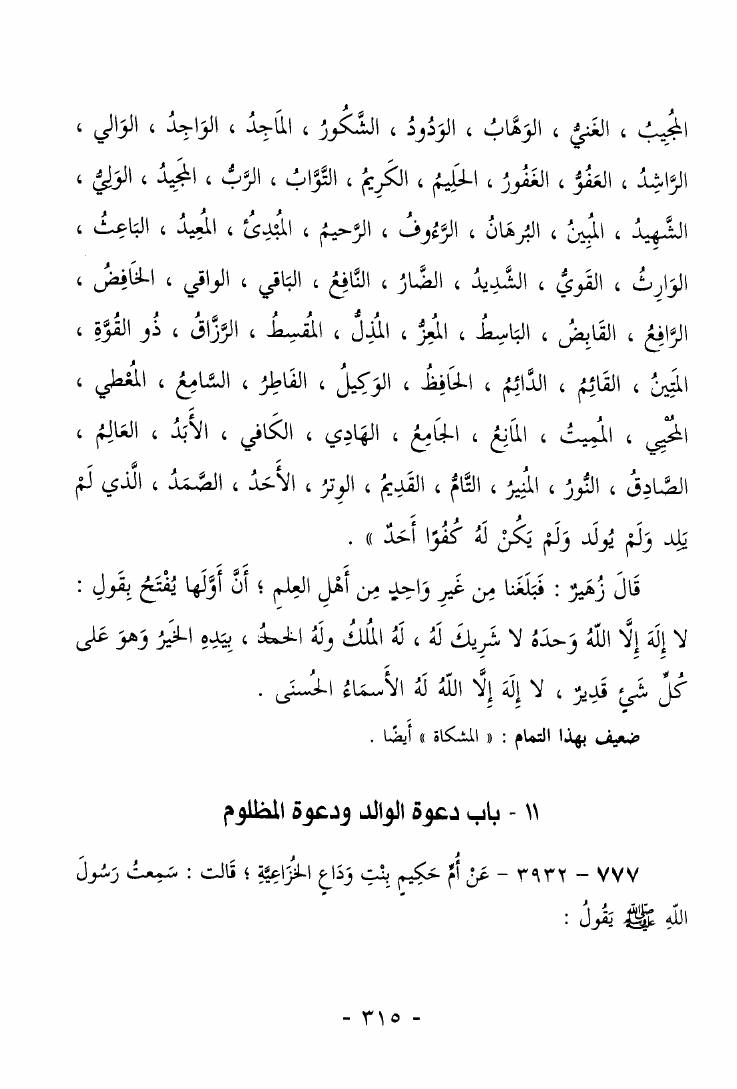 المُجِيبُ ، الغَنيُّ ، الوَهَّابُ ، الوَدُودُ ، الشَّكُورُ ، المَاجِدُ ، الوَاجِدُ ، الوَالي ،
الرَّاشِدُ ، العَفُوُّ ، الغَفُورُ ، الحَلِيمُ ، الكَرِيمُ ، التَّوَّابُ ، الرَّبُّ ، المَجِيدُ ، الوَلِيُّ ،
الشَّهِيدُ ، المُبِينُ ، البُرهَانُ ، الرَّءُوفُ ، الرَّحيمُ ، المُبْدِئُ ، المُعِيدُ ، البَاعِثُ ،
الوَارِثُ ، القَويُّ ، الشَّدِيدُ ، الضَّارُ ، النَّافِعُ ، البَاقي ، الواقي ، الخَافِضُ ،
الرَّافِعُ ، القَابِضُ ، البَاسِطُ ، المُعِزُّ ، المُذِلُّ ، المُقسِطُ ، الرَّزَّاقُ ، ذُو القُوَّةِ ،
المَتِينُ ، القَائِمُ ، الدَّائِمُ ، الحَافِظُ ، الوَكِيلُ ، الفَاطِرُ ، السَّامِعُ ، المُعْطي ،
المُحْيِي ، المُمِيتُ ، المَانِعُ ، الجَامِعُ ، الهَادِي ، الكَافي ، الأَبَدُ ، العَالِمُ ،
الصَّادِقُ ، النُّورُ ، المُنِيرُ ، التَّامُّ ، القَدِيمُ ، الوِترُ ، الأَحَدُ ، الصَّمَدُ ، الَّذي لَمْ
يَلِد وَلَمْ يُولَد وَلَمْ يَكُنْ لَهُ كُفُوًا أَحَدٌ » .
قَالَ زُهَيرٌ : فَبَلَغَنا مِن غَيرِ وَاحِدٍ مِن أَهْلِ العِلمِ ؛ أَنَّ أَوَّلَها يُفْتَحُ بِقَولِ :
لا إِلَهَ إِلَّا اللّهُ وَحدَهُ لا شَرِيكَ لَهُ ، لَهُ المُلكُ ولَهُ الحَمدُ ، بِيَدِهِ الخَيرُ وَهوَ عَلى
كُلِّ شَيْءٍ قَدِيرٌ ، لا إِلَهَ إِلَّا اللهُ لَهُ الأَسمَاءُ الحُسنَى .
ضعيف بهذا التمام : « المشكاة » أَيضًا .
١١ - باب دعوة الوالد ودعوة المظلوم
٧٧٧ - ٣٩٣٢ - عَنْ أُمِّ حَكِيمٍ بِنْتِ وَدَاعٍ الخُزَاعِيَّةِ ؛ قَالت : سَمِعتُ رَسُولَ
اللّهِ ﷺ يَقُولُ :
- ٣١٥ -